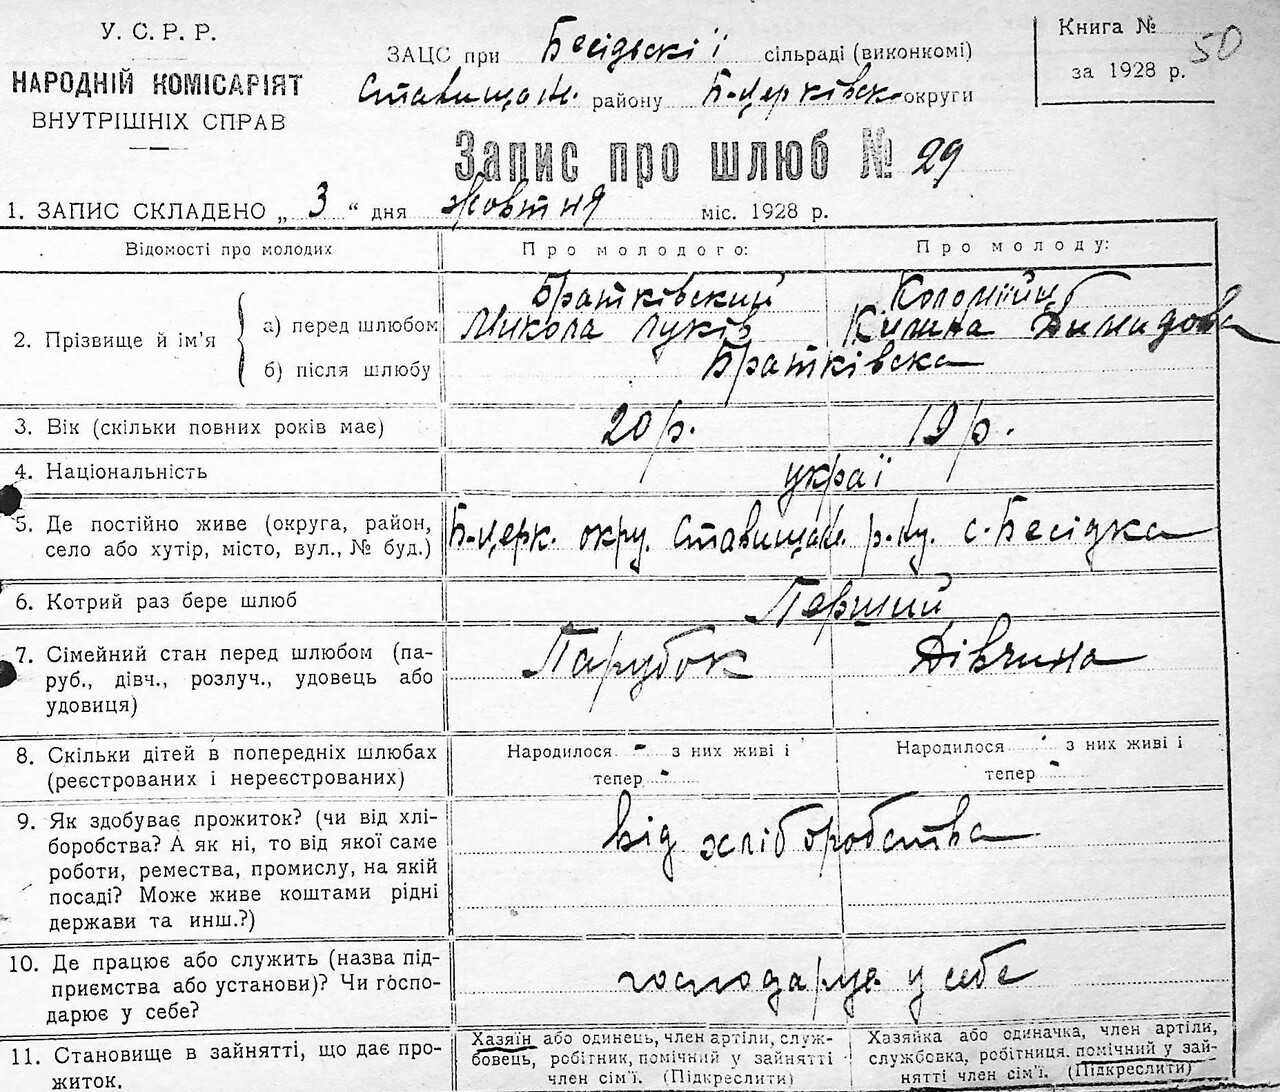 У. С. Р. Р.
НАРОДНІЙ КОМІСАРІЯТ
ВНУТРІШНІХ СПРАВ
ЗАЦС при Бесідьскії сільраді (виконкомі)
Ставищан. району Б-Церківск. округи
Книга № 50
за 1928 р.
Запис про шлюб № 29
1. ЗАПИС СКЛАДЕНО „ 3 “ дня Жовтня міс. 1928 р.
Відомості про молодих
Про молодого:
Про молоду:
2. Прізвище й ім'я
а) перед шлюбом
Братківский
Микола Луків
Коломійц
Килина Димидова
б) після шлюбу
Братківска
3. Вік (скільки повних років має)
20 р.
19 р.
4. Національність
украї
5. Де постійно живе (округа, район,
село або хутір, місто, вул., № буд.)
Б-Церк. окру. Ставищан. р-ну. с. Бесідка
6. Котрий раз бере шлюб
Перший
7. Сімейний стан перед шлюбом (па-
руб., дівч., розлуч., удовець або
удовиця)
Парубок
Дівчина
8. Скільки дітей в попередніх шлюбах
(реєстрованих і нереєстрованих)
Народилося - з них живі і
тепер -
Народилося - з них живі і
тепер -
9. Як здобуває прожиток? (чи від хлі-
боробства? А як ні, то від якої саме
роботи, ремества, промислу, на якій
посаді? Може живе коштами рідні
держави та инш.?)
Від хліборобства
10. Де працює або служить (назва під-
приємства або установи)? Чи госпо-
дарює у себе?
господарує у себе
11. Становище в зайнятті, що дає про-
житок.
Хазяїн або одинець, член артіли, служ-
бовець, робітник, помічний у зайнятті
член сім'ї. (Підкреслити)
Хазяйка або одиначка, член артіли,
службовка, робітниця. помічний у зай-
нятті член сім'ї. (Підкреслити)